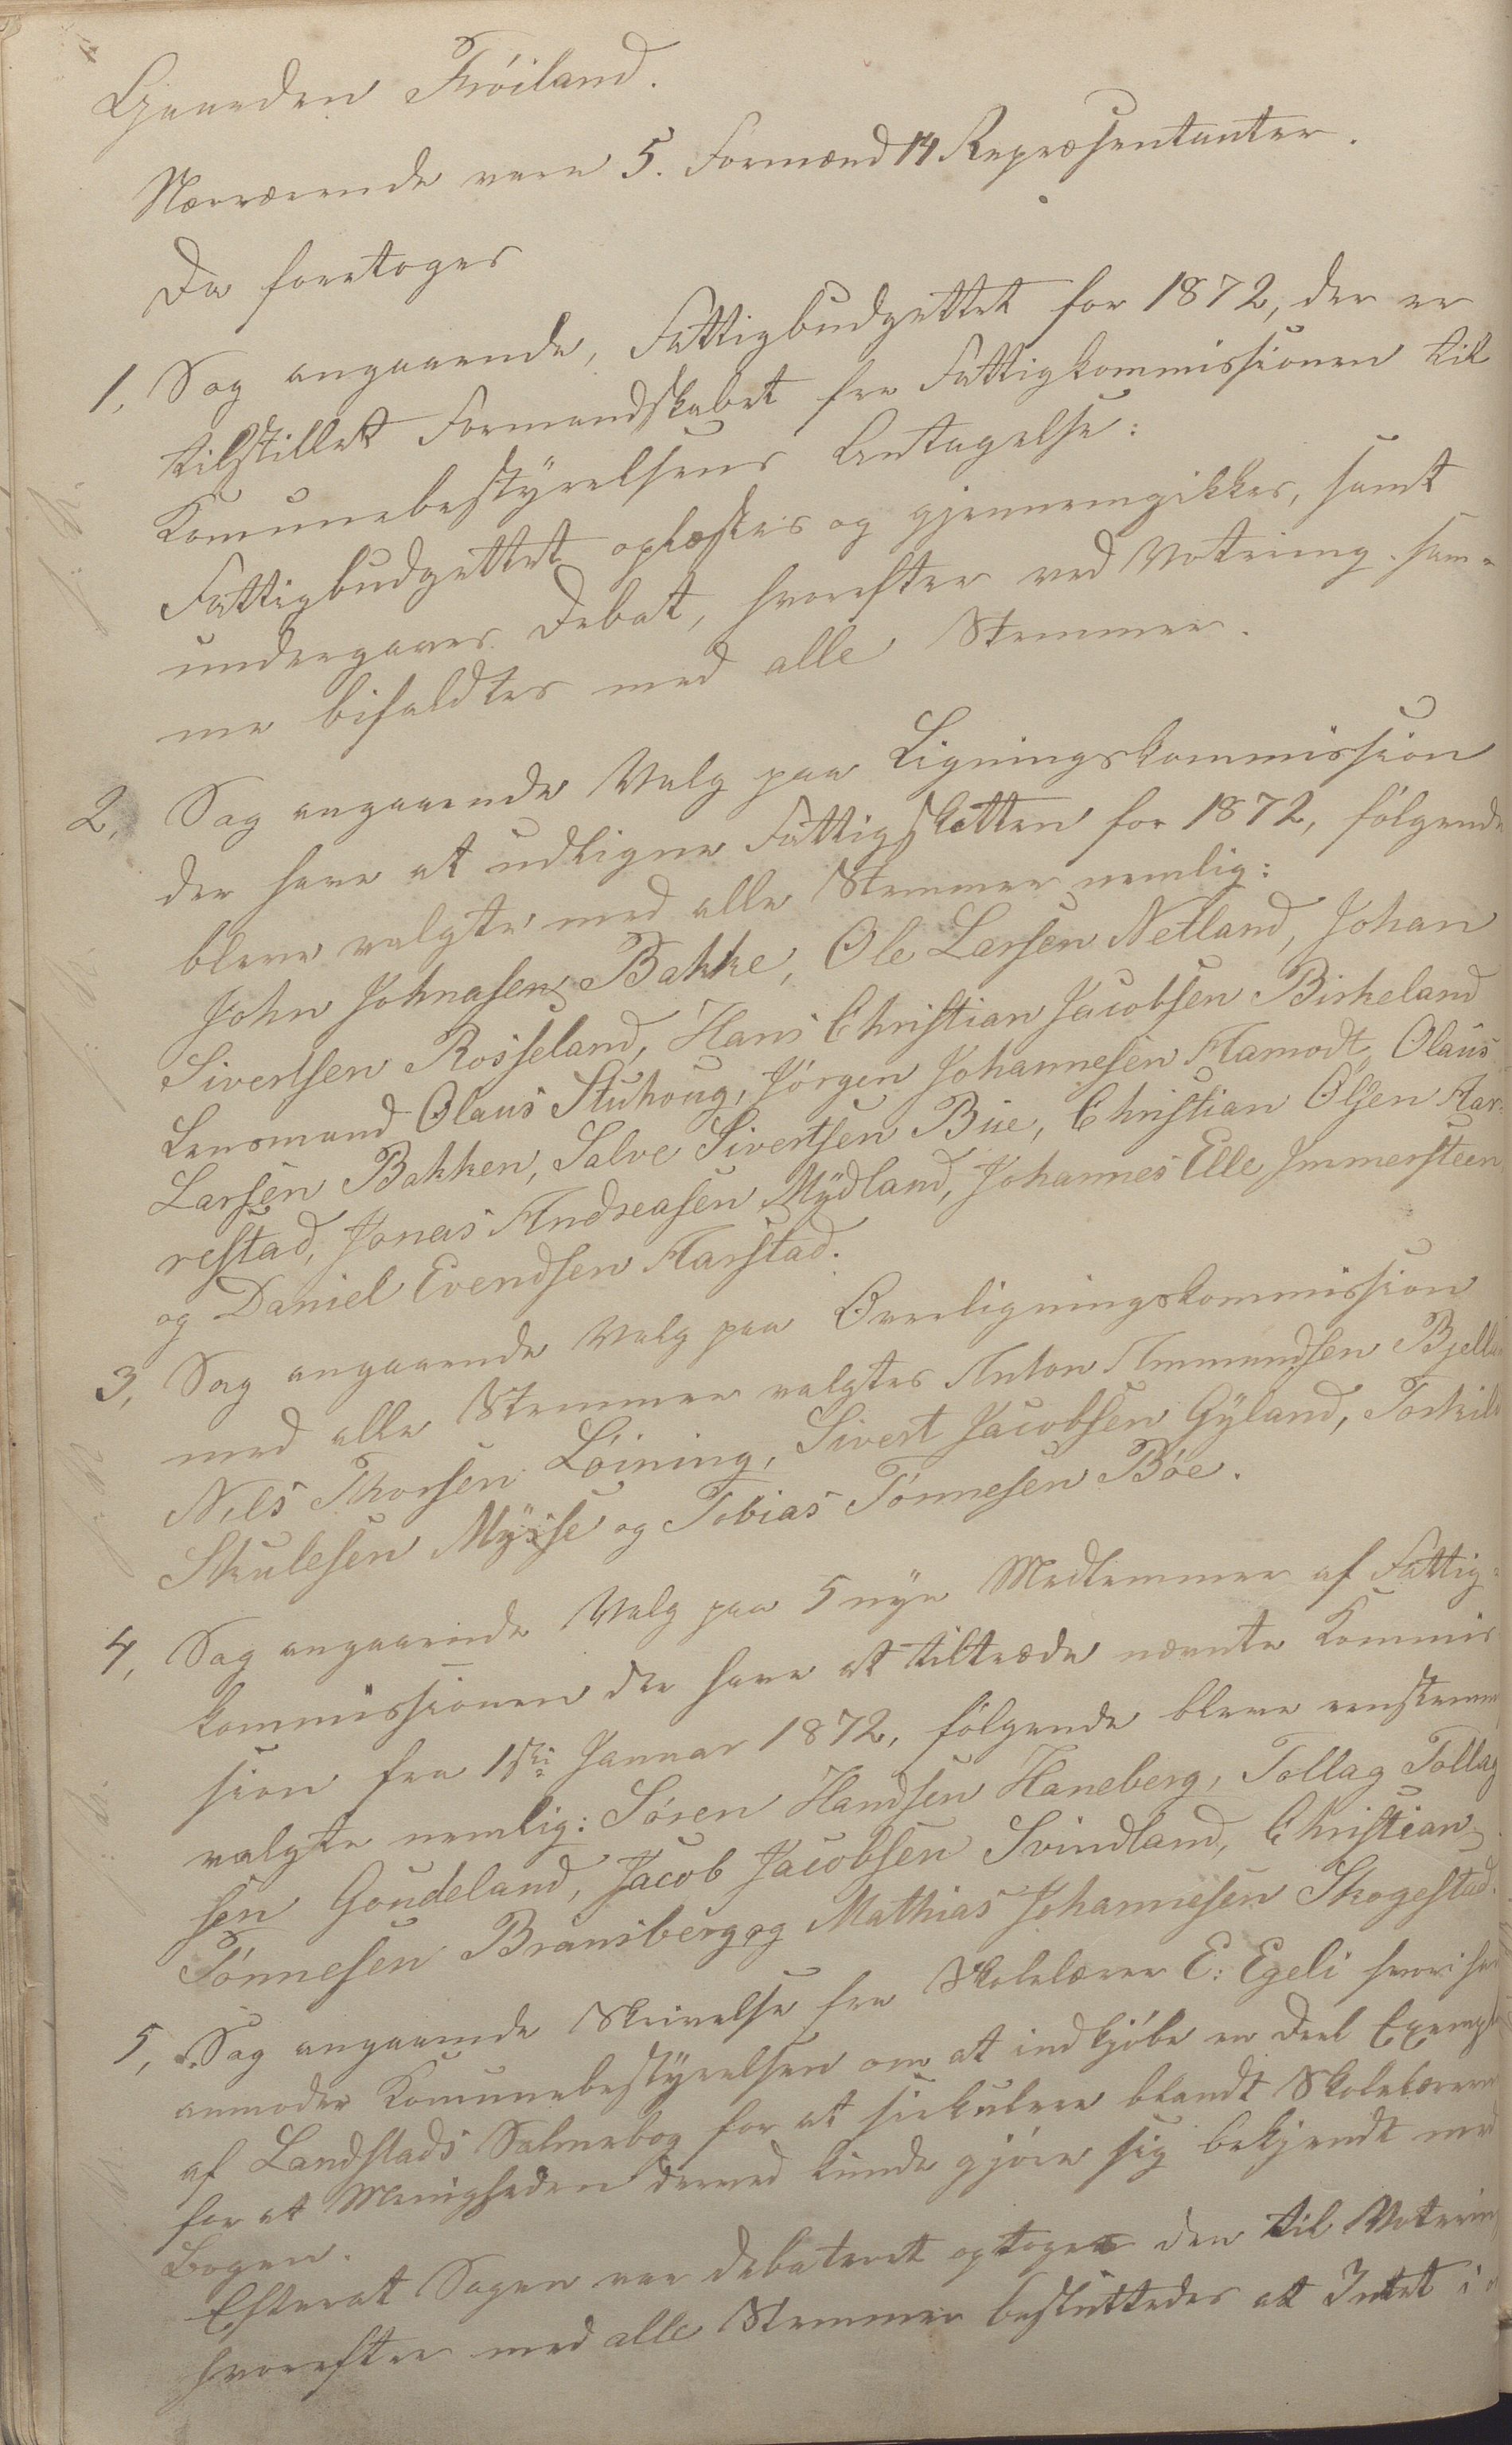 Gaarden Frøiland.
Nærværende vare 5. Formænd 14 Repræsentanter.
Da foretoges
1, Sag angaaende, Fattigbudgettet for 1872, der er
tilstillet Formandskabet fra Fattigkommissionen til
Komunebestyrelsens Antagelse:
Fattigbudgettet oplæstes og gjennemgikkes, samt
undergaves Debat, hvorefter ved Votering sam=
me bifaldtes med alle Stemmer.
2, Sag angaaende Valg paa Ligningskommission
der have at udligne Fattigskatten for 1872, følgende
bleve valgte med alle Stemmer nemlig:
John Johnasen Bakke, Ole Larsen Netland, Johan
Sivertsen Rosseland, Hans Christian Jacobsen Birkeland
Lensmand Olaus Stuhoug, Jørgen Johannesen Aamodt, Olaus
Larsen Bakken, Salve Sivertsen Bue, Christian Olsen Aar=
restad, Jonas Andreasen Mydland, Johannes Elle Immersteen
og Daniel Evendsen Aarstad.
3, Sag angaaende Valg paa Overligningskommission
med alle Stemmer valgtes Anton Ammundsen Bjelland
Nils Thorsen Løining, Sivert Jacobsen Gyland, Torkild
Skulesen Mysse og Tobias Tønnesen Bøe.
4, Sag angaaende Valg paa 5 nye Medlemmer af Fattig=
kommissionen der have at tiltræde nævnte Kommis
sion fra 1ste Januar 1872, følgende bleve eenstemm
valgte nemlig: Søren Handsen Haneberg, Tollag Tollag
sen Goudeland, Jacob Jacobsen Svindland, Christian
Tønnesen Bransberg og Mathias Johannesen Skogestad.
5, Sag angaaende Skrivelse fra Skolelærer E: Egeli hvori han
anmoder Komunebestyrelsen om at indkjøbe en Deel Exempl
af Landstads Salmebog for at sirkulere blandt Skolelærern
for at Menigheden derved kunde gjøre sig bekjendt med
Bogen.
Efterat Sagen var debateret optoges den til Voterin
hvorefter med alle Stemmer besluttedes at Intet i